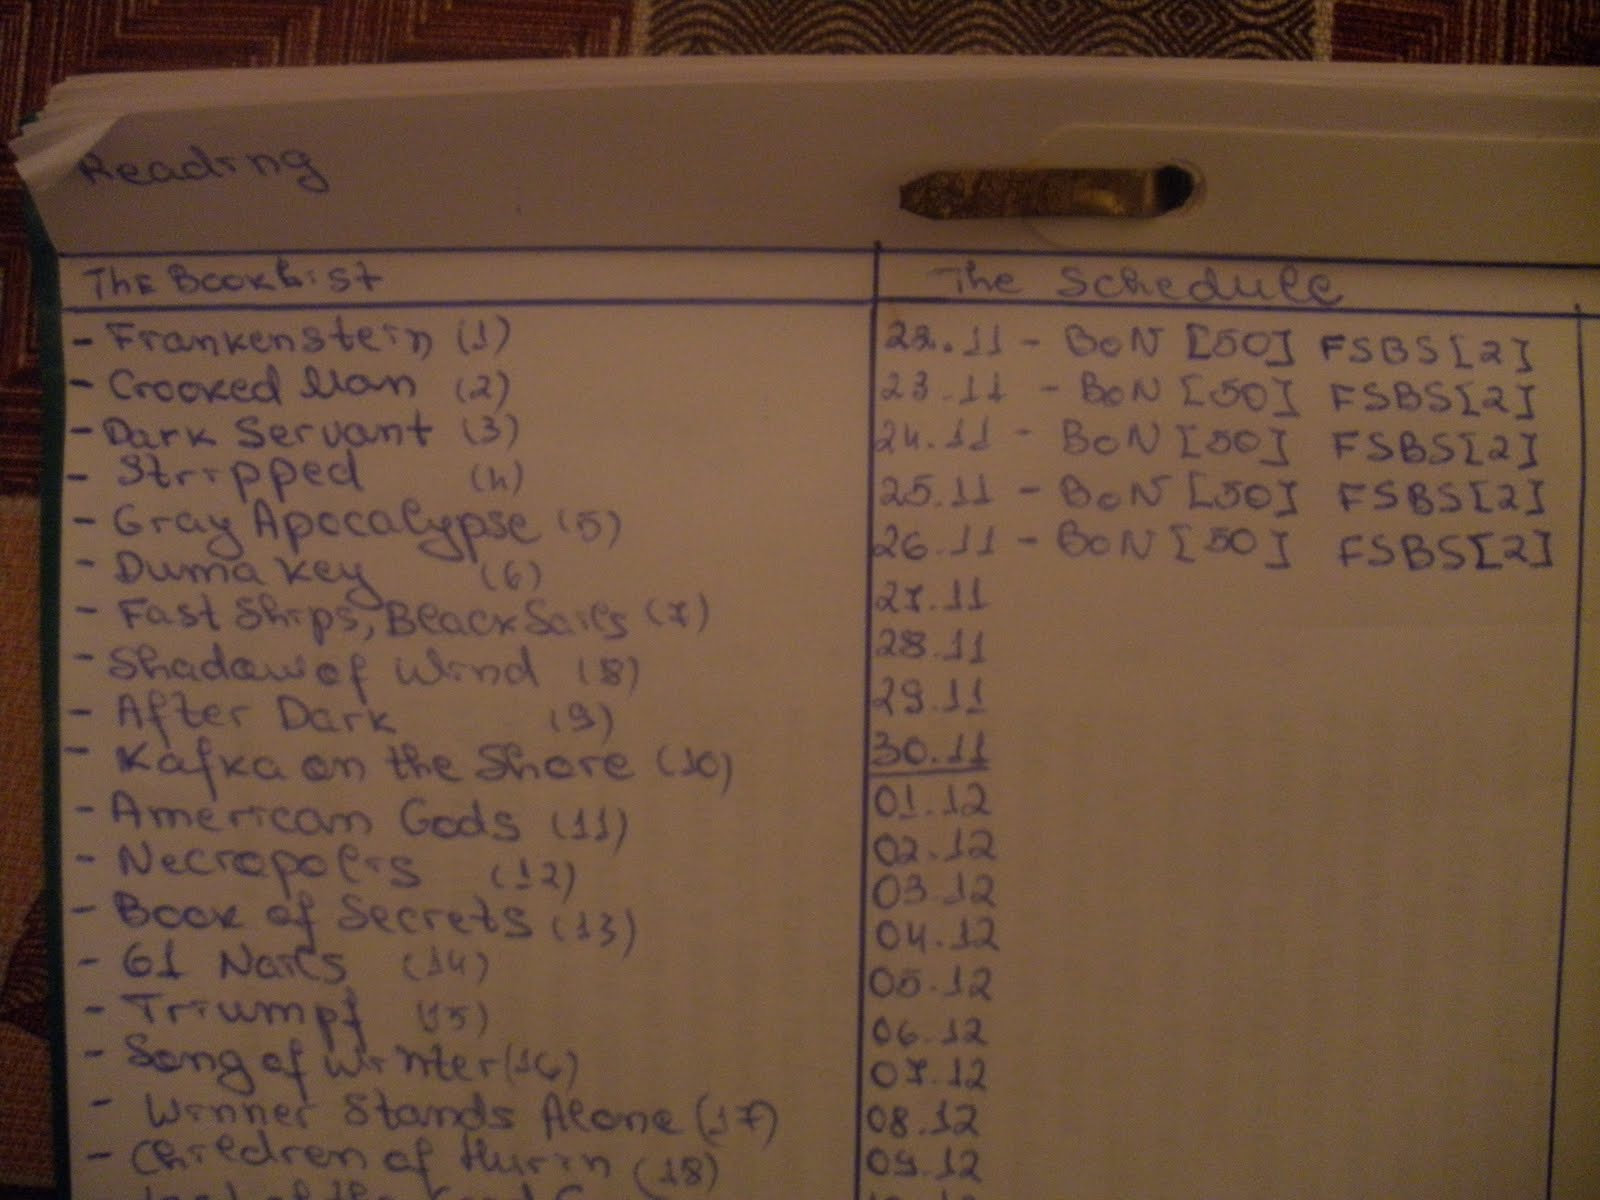 Reading
The Book List
- Frankenstein (1)
- Crooked Man (2)
- Dark Servant (3)
- Stripped (4)
- Gray Apocalypse (5)
- Duma Key (6)
- Fast Ships, Black Sails (7)
- Shadow of Wind (8)
- After Dark (9)
- Kafka on the Shore (10)
- American Gods (11)
- Necropolis (12)
- Book of Secrets (13)
- 61 Nails (14)
- Triumpf (15)
- Song of Winter (16)
- Winner Stands Alone (17)
- Children of Hurin (18)
The Schedule
22.11 - BoN [50] FSBS [2]
23.11 - BoN [50] FSBS [2]
24.11 - BoN [50] FSBS [2]
25.11 - BoN [50] FSBS [2]
26.11 - BoN [50] FSBS [2]
27.11
28.11
29.11
30.11
01.12
02.12
03.12
04.12
05.12
06.12
07.12
08.12
09.12